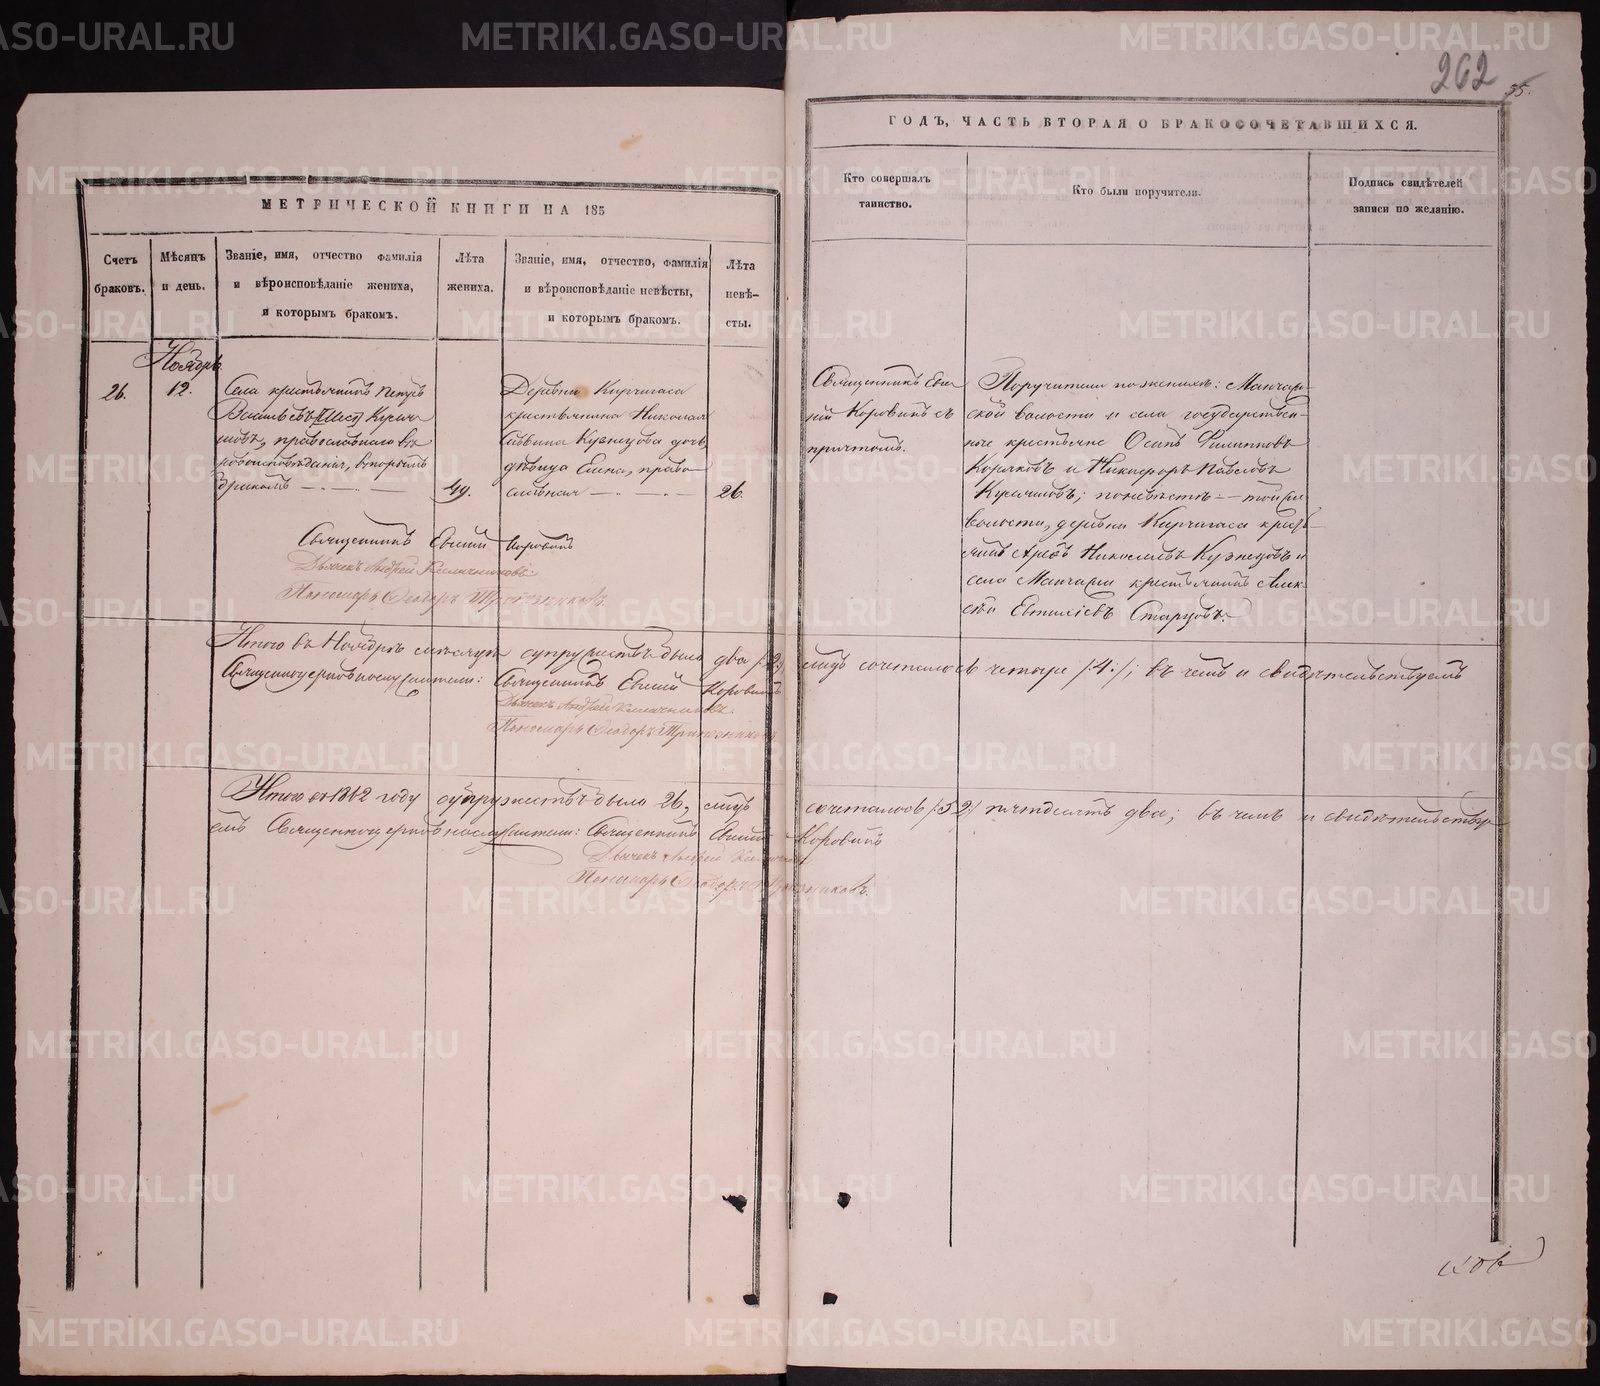 262
35.
МЕТРИЧЕСКОЙ КНИГИ НА 185
Счетъ
браковъ.
Мѣсяцъ
и день.
Званіе, имя, отчество фамилія
и вѣроисповѣданіе жениха,
и которымъ бракомъ.
Лѣта
жениха.
Званіе, имя, отчество, фамилія
и вѣроисповѣданіе невѣсты,
и которымъ бракомъ.
Лѣта
невѣ-
сты.
Ноябрь
26.
12.
Села крестьянинъ Петръ
Васильевъ
православнаго вѣ
роисповѣданія, вторымъ
бракомъ
49.
Деревни Кирчигаса
крестьянина Николая
Савина Кузнецова дочь,
дѣвица Елена, право
славная
26.
Священникъ Евѳимій Коровинъ
Дьячекъ Андрей
Пономарь Ѳеодоръ Трапезниковъ.
Итого въ Ноябрѣ мѣсяцѣ супружествъ было два /:2:/
Священноцерковнослужители: Священникъ Евѳимій Коровинъ
Дьячекъ Андрей
Пономарь Ѳеодоръ Трапезниковъ
Итого въ 1862 году супружествъ было 26, лицъ
емъ Священноцерковнослужители: Священникъ Евѳимій
Дьячекъ Андрей
Пономарь Ѳеодоръ Трапезниковъ.
ГОДЪ, ЧАСТЬ ВТОРАЯ О БРАКОСОЧЕТАВШИХСЯ.
Кто совершалъ
таинство.
Кто были поручители.
Подпись свидѣтелей
записи по желанію.
Священникъ Евѳи
мій Коровинъ съ
причтомъ.
Поручители по женихѣ: Манчаж-
ской волости и села государствен-
ные крестьяне Осипъ Филипповъ
Коряковъ и Никифоръ Павловъ
по невѣстѣ - той же
волости, деревни Кирчигаса кресть-
Николаевъ Кузнецовъ и
села Манчажа крестьянинъ Алек-
сѣй Старцовъ.
лицъ сочеталось четыре /:4:/; въ чемъ и свидѣтельствуемъ
сочеталось /:52:/ пятдесятъ два; въ чемъ и свидѣтельству
Коровинъ
METRIKI.GASO-URAL.RU